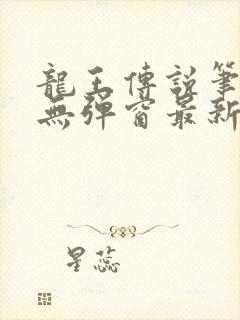 龍王傳說筆
無彈窗最新
星蕊